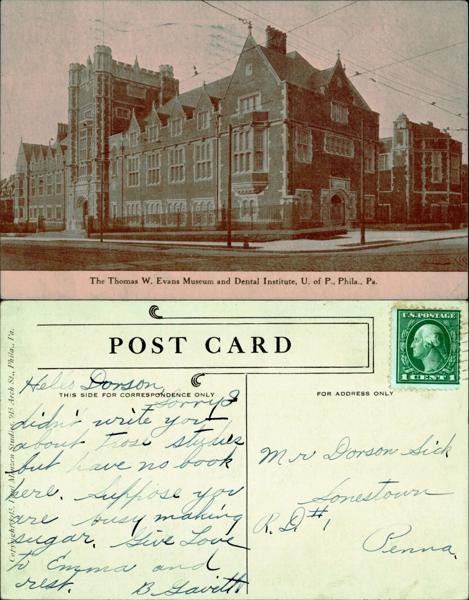 The Thomas W. Evans Museum and Dental Institute, U. of P., Phila., Pa.
POST CARD
THIS SIDE FOR CORRESPONDENCE ONLY
FOR ADDRESS ONLY
U.S. POSTAGE
1 CENT 1
Hello Dorson,
Sorry I
didn't write you
about those studies
but have no book
here. Suppose you
are busy making
sugar. Give Love
to Emma and
rest. B
Mr Dorson Sick
Sonestown
R.D #1
Penna.
Studios, 915 Arch St., Phila., Pa.